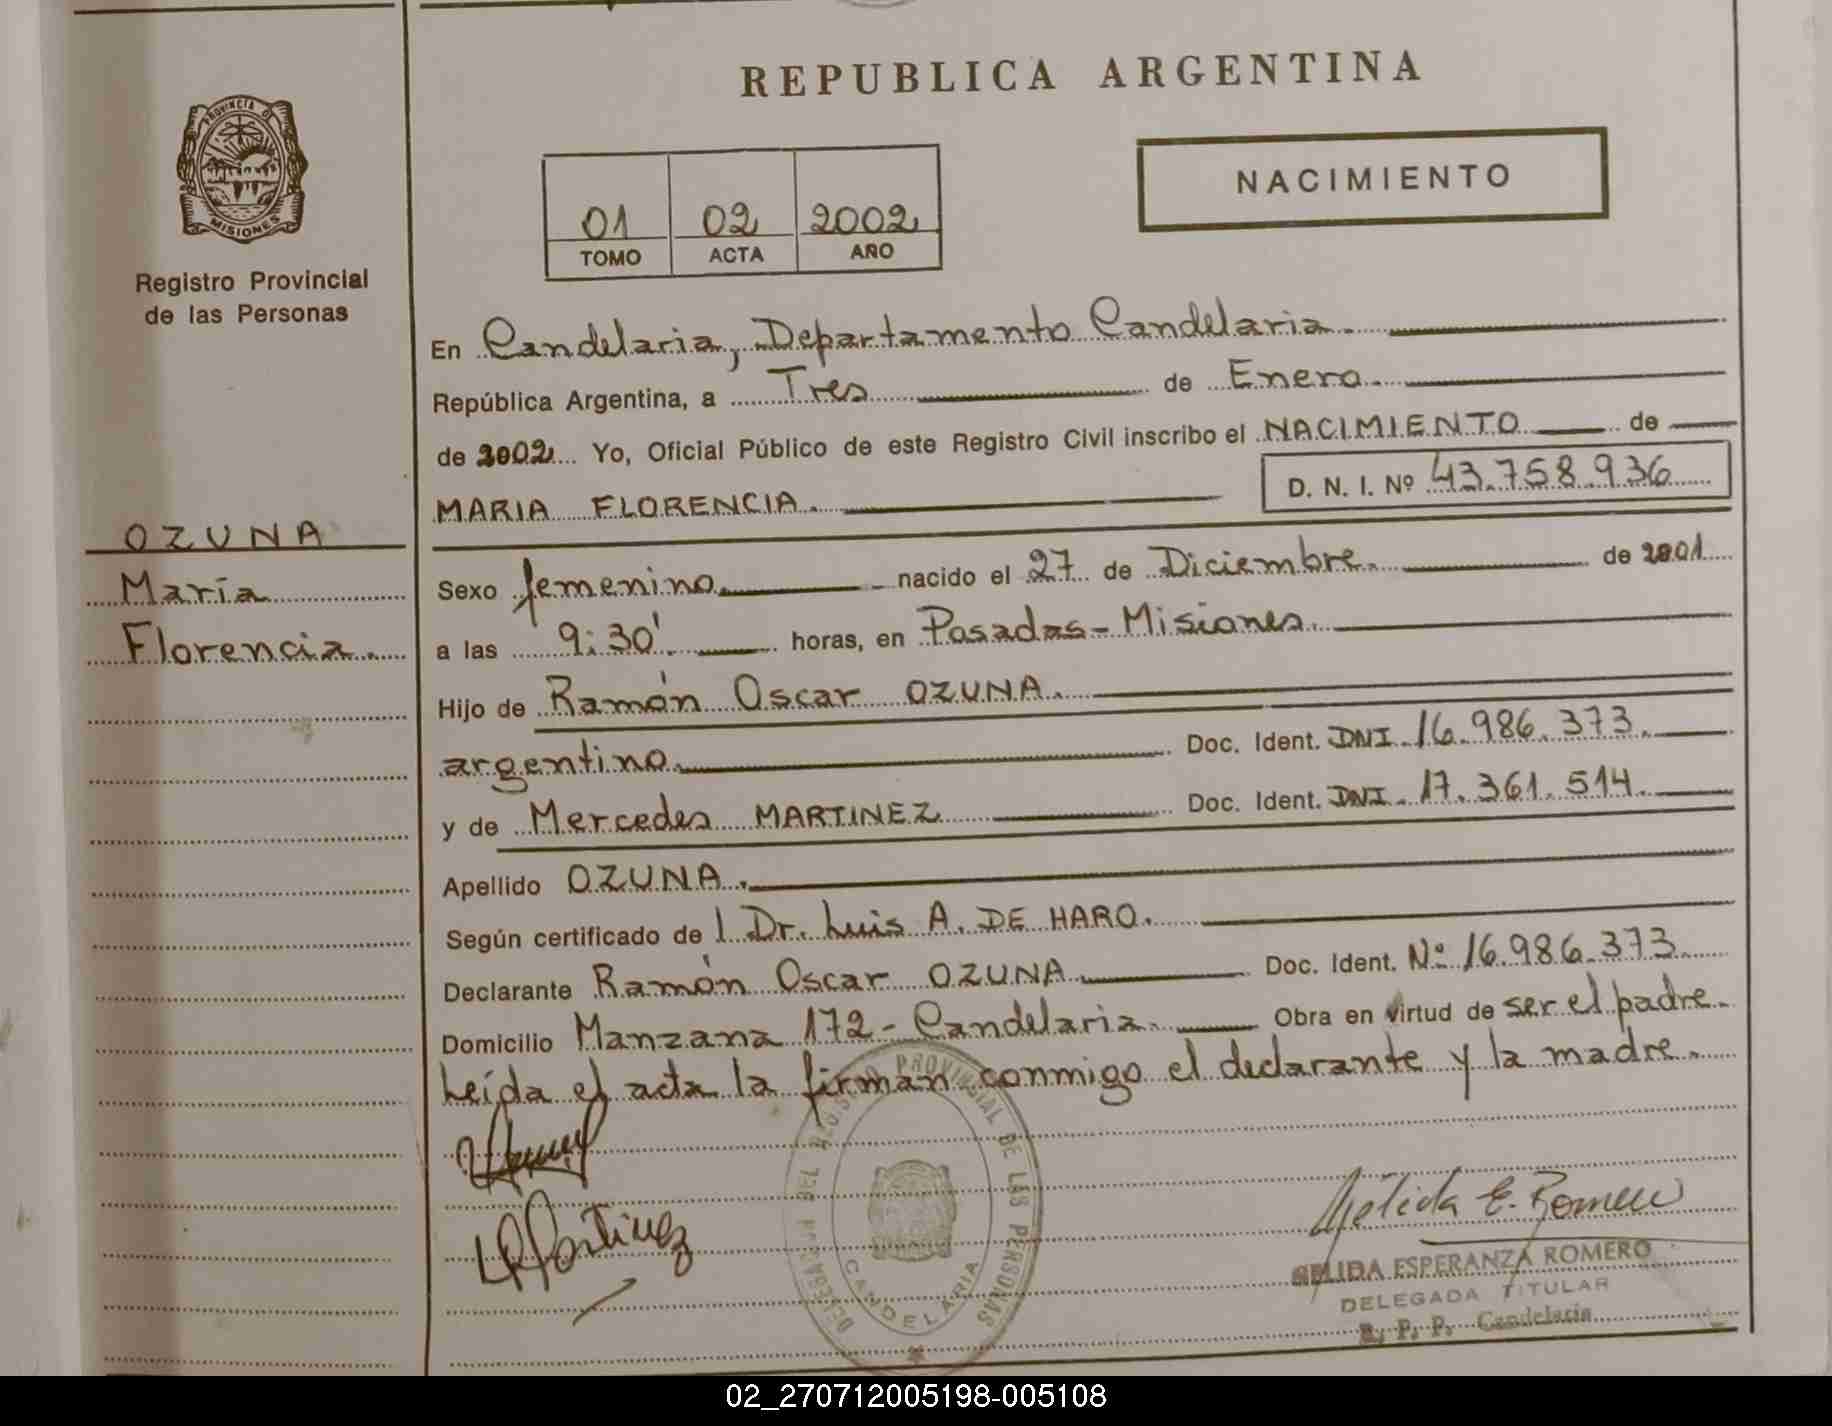 REPUBLICA ARGENTINA
PROVINCIA D
MISIONES
Registro Provincial
de las Personas
01 02 2002
TOMO ACTA AÑO
NACIMIENTO
En Candelaria, Departamento Candelaria.
República Argentina, a Tres de Enero.
de 2002 Yo, Oficial Público de este Registro Civil inscribo el NACIMIENTO de
MARIA FLORENCIA. D. N. I. Nº 43.758.936
OZUNA
María
Florencia.
Sexo femenino. nacido el 27 de Diciembre. de 2001
a las 9:30'. horas, en Posadas-Misiones.
Hijo de Ramón Oscar OZUNA.
argentino. Doc. Ident. DNI. 16.986.373.
y de Mercedes MARTINEZ Doc. Ident. DNI. 17.361.514.
Apellido OZUNA.
Según certificado de l Dr. Luis A. DE HARO.
Declarante Ramón Oscar OZUNA Doc. Ident. Nº 16.986.373.
Domicilio Manzana 172- Candelaria. Obra en virtud de ser el padre.
Leída el acta la firman conmigo el declarante y la madre.
REGISTRO PROVINCIAL DE LAS PERSONAS
CANDELARIA
Martinez
Mélida E. Romero
MELIDA ESPERANZA ROMERO
DELEGADA TITULAR
R. P. P. Candelaria
02_270712005198-005108